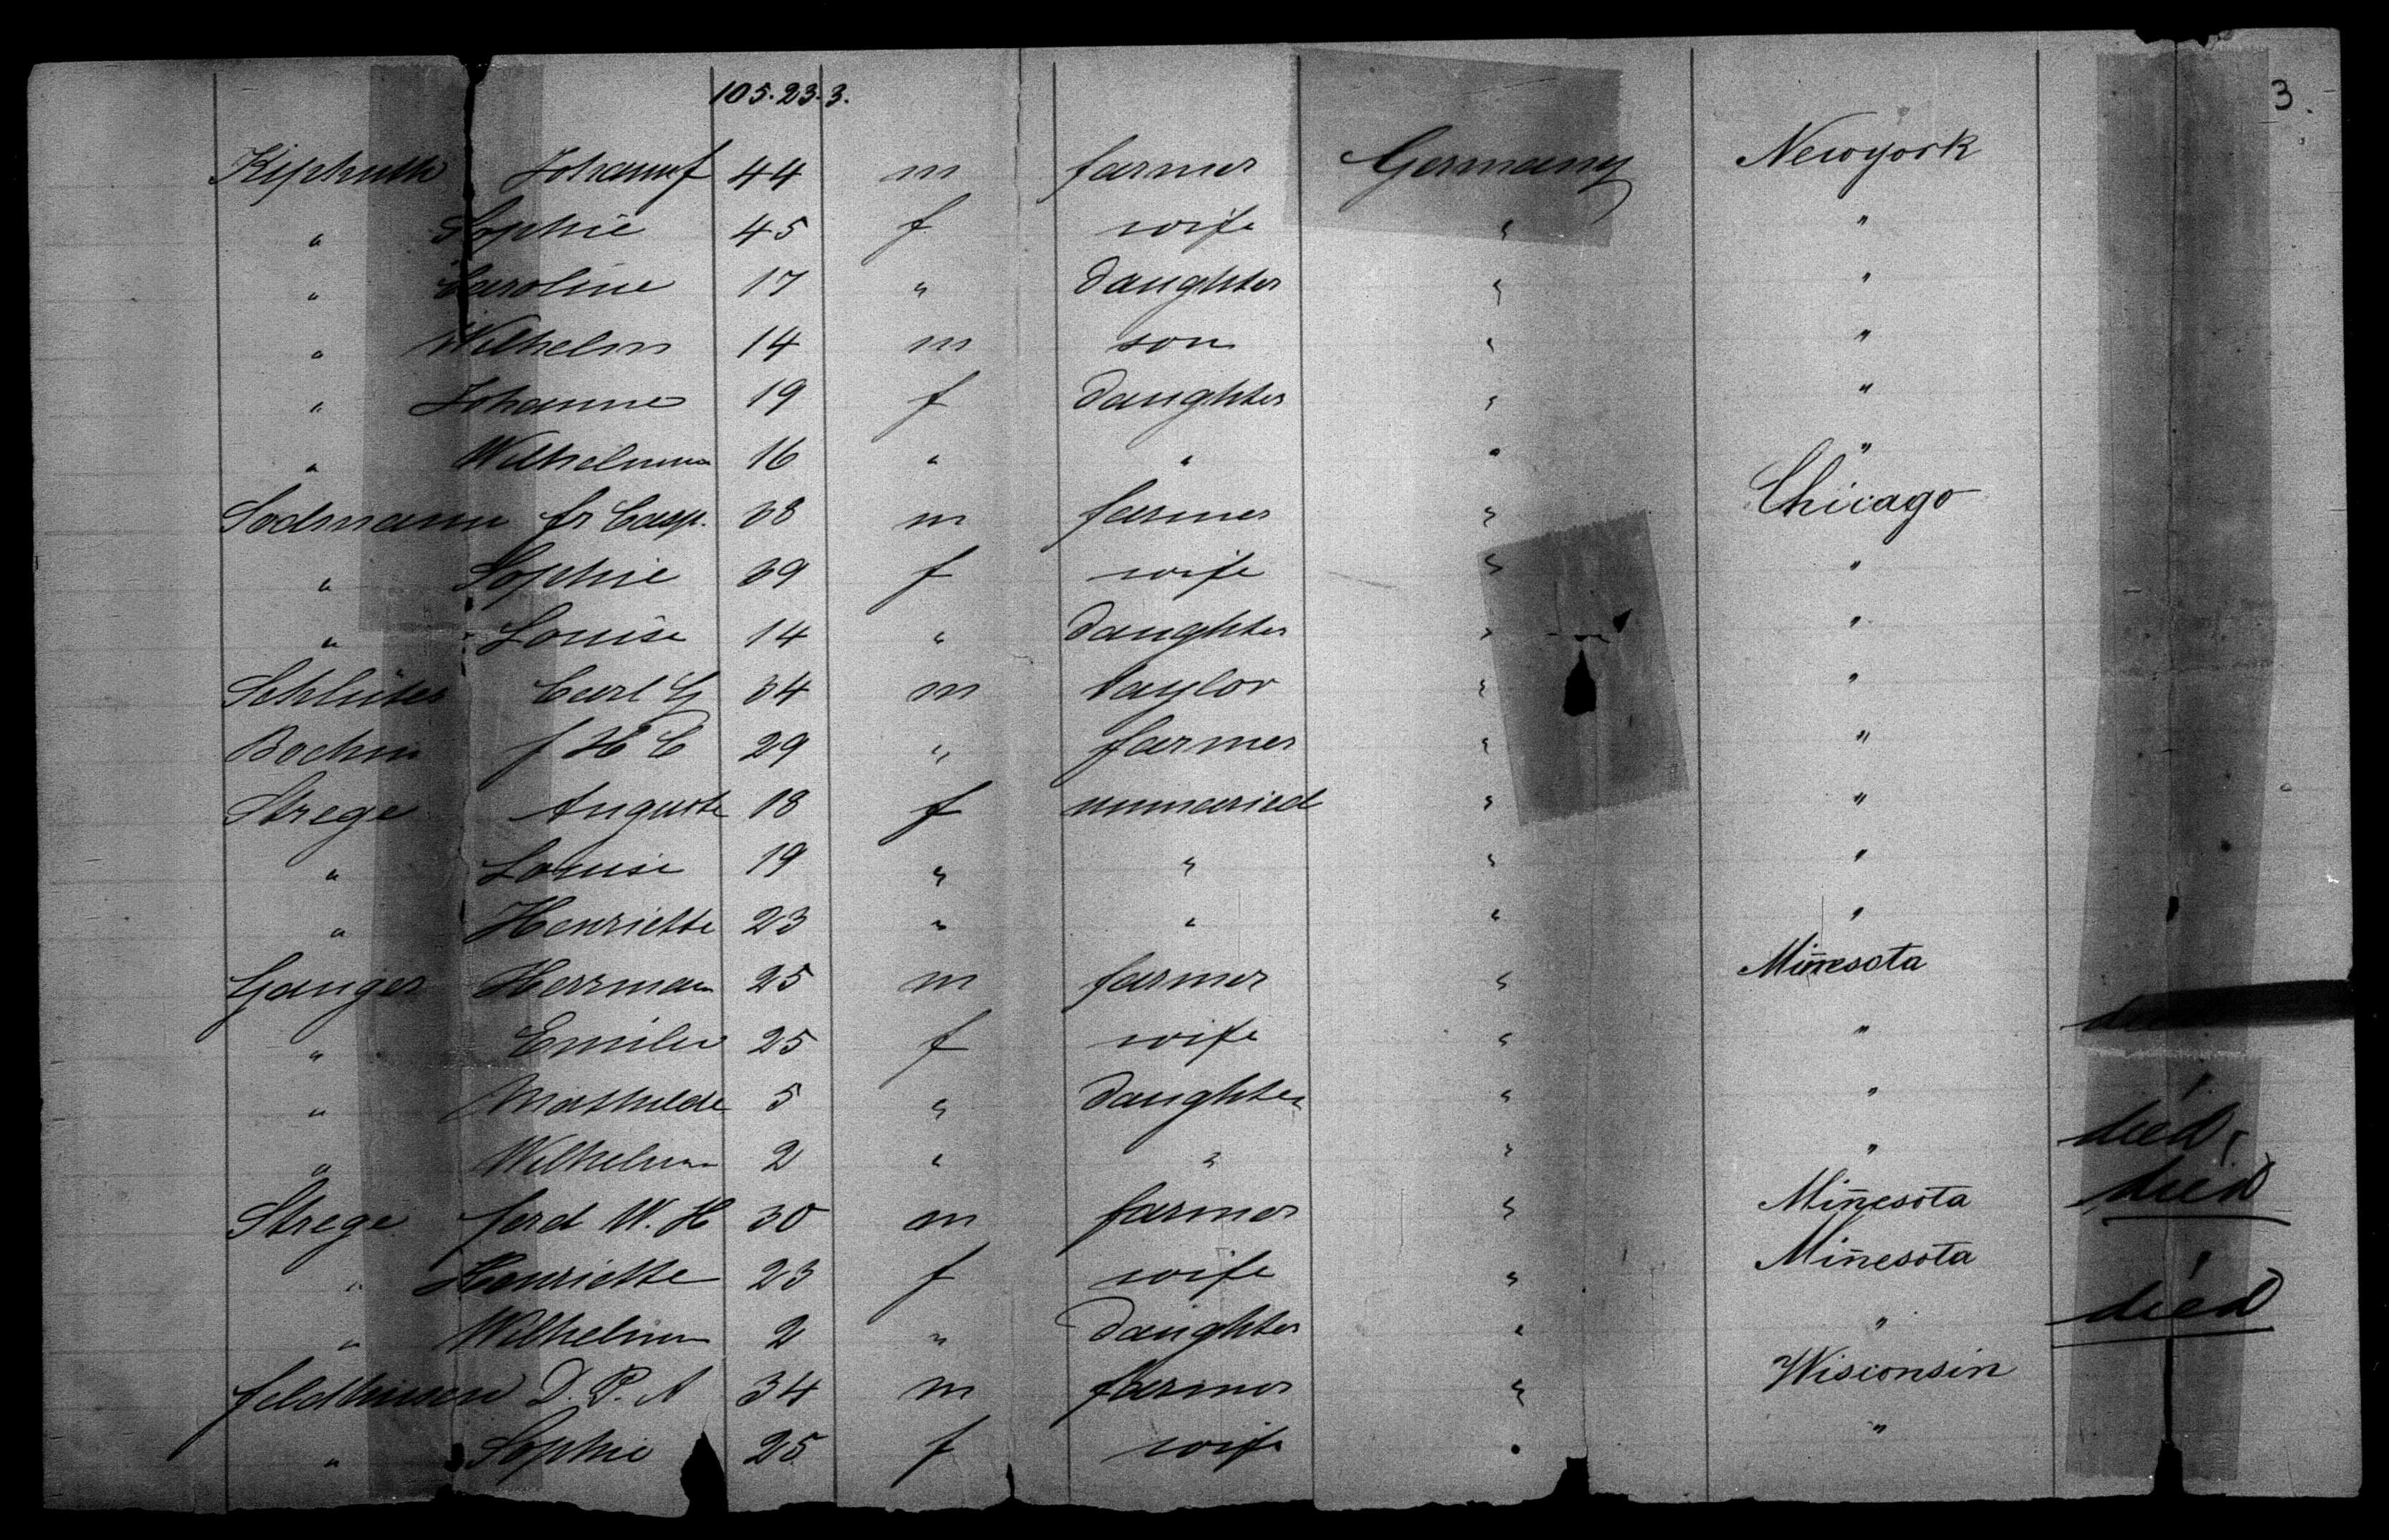 105. 23. 3. 3.
Kiphuth Johann f 44 m farmer Germany Newyork
" Sophie 45 f wife " "
" Caroline 17 " daughter " "
" Wilhelm 14 m son " "
" Johanne 19 f daughter " "
" Wilhelmine 16 " " " "
Sodmann fr Casp. 38 m farmer " Chicago
" Sophie 39 f wife " "
" Louise 14 " daughter " "
Schlüter Carl G 34 m taylor " "
Boehm f H C 29 " farmer " "
Strege Auguste 18 f unmaried " "
" Louise 19 " " " "
" Henriette 23 " " " "
Ganger Herrman 25 m farmer " Miñesota
" Emilie 25 f wife " "
" Mathilde 5 " daughter " "
" Wilhelmine 2 " " " " died,
Strege ferd W. H 30 m farmer " Miñesota died
" Henriette 23 f wife " Miñesota
" Wilhelmine 2 " daughter " " died
D. P. A 34 m farmer " Wisconsin
" Sophie 25 f wife " "